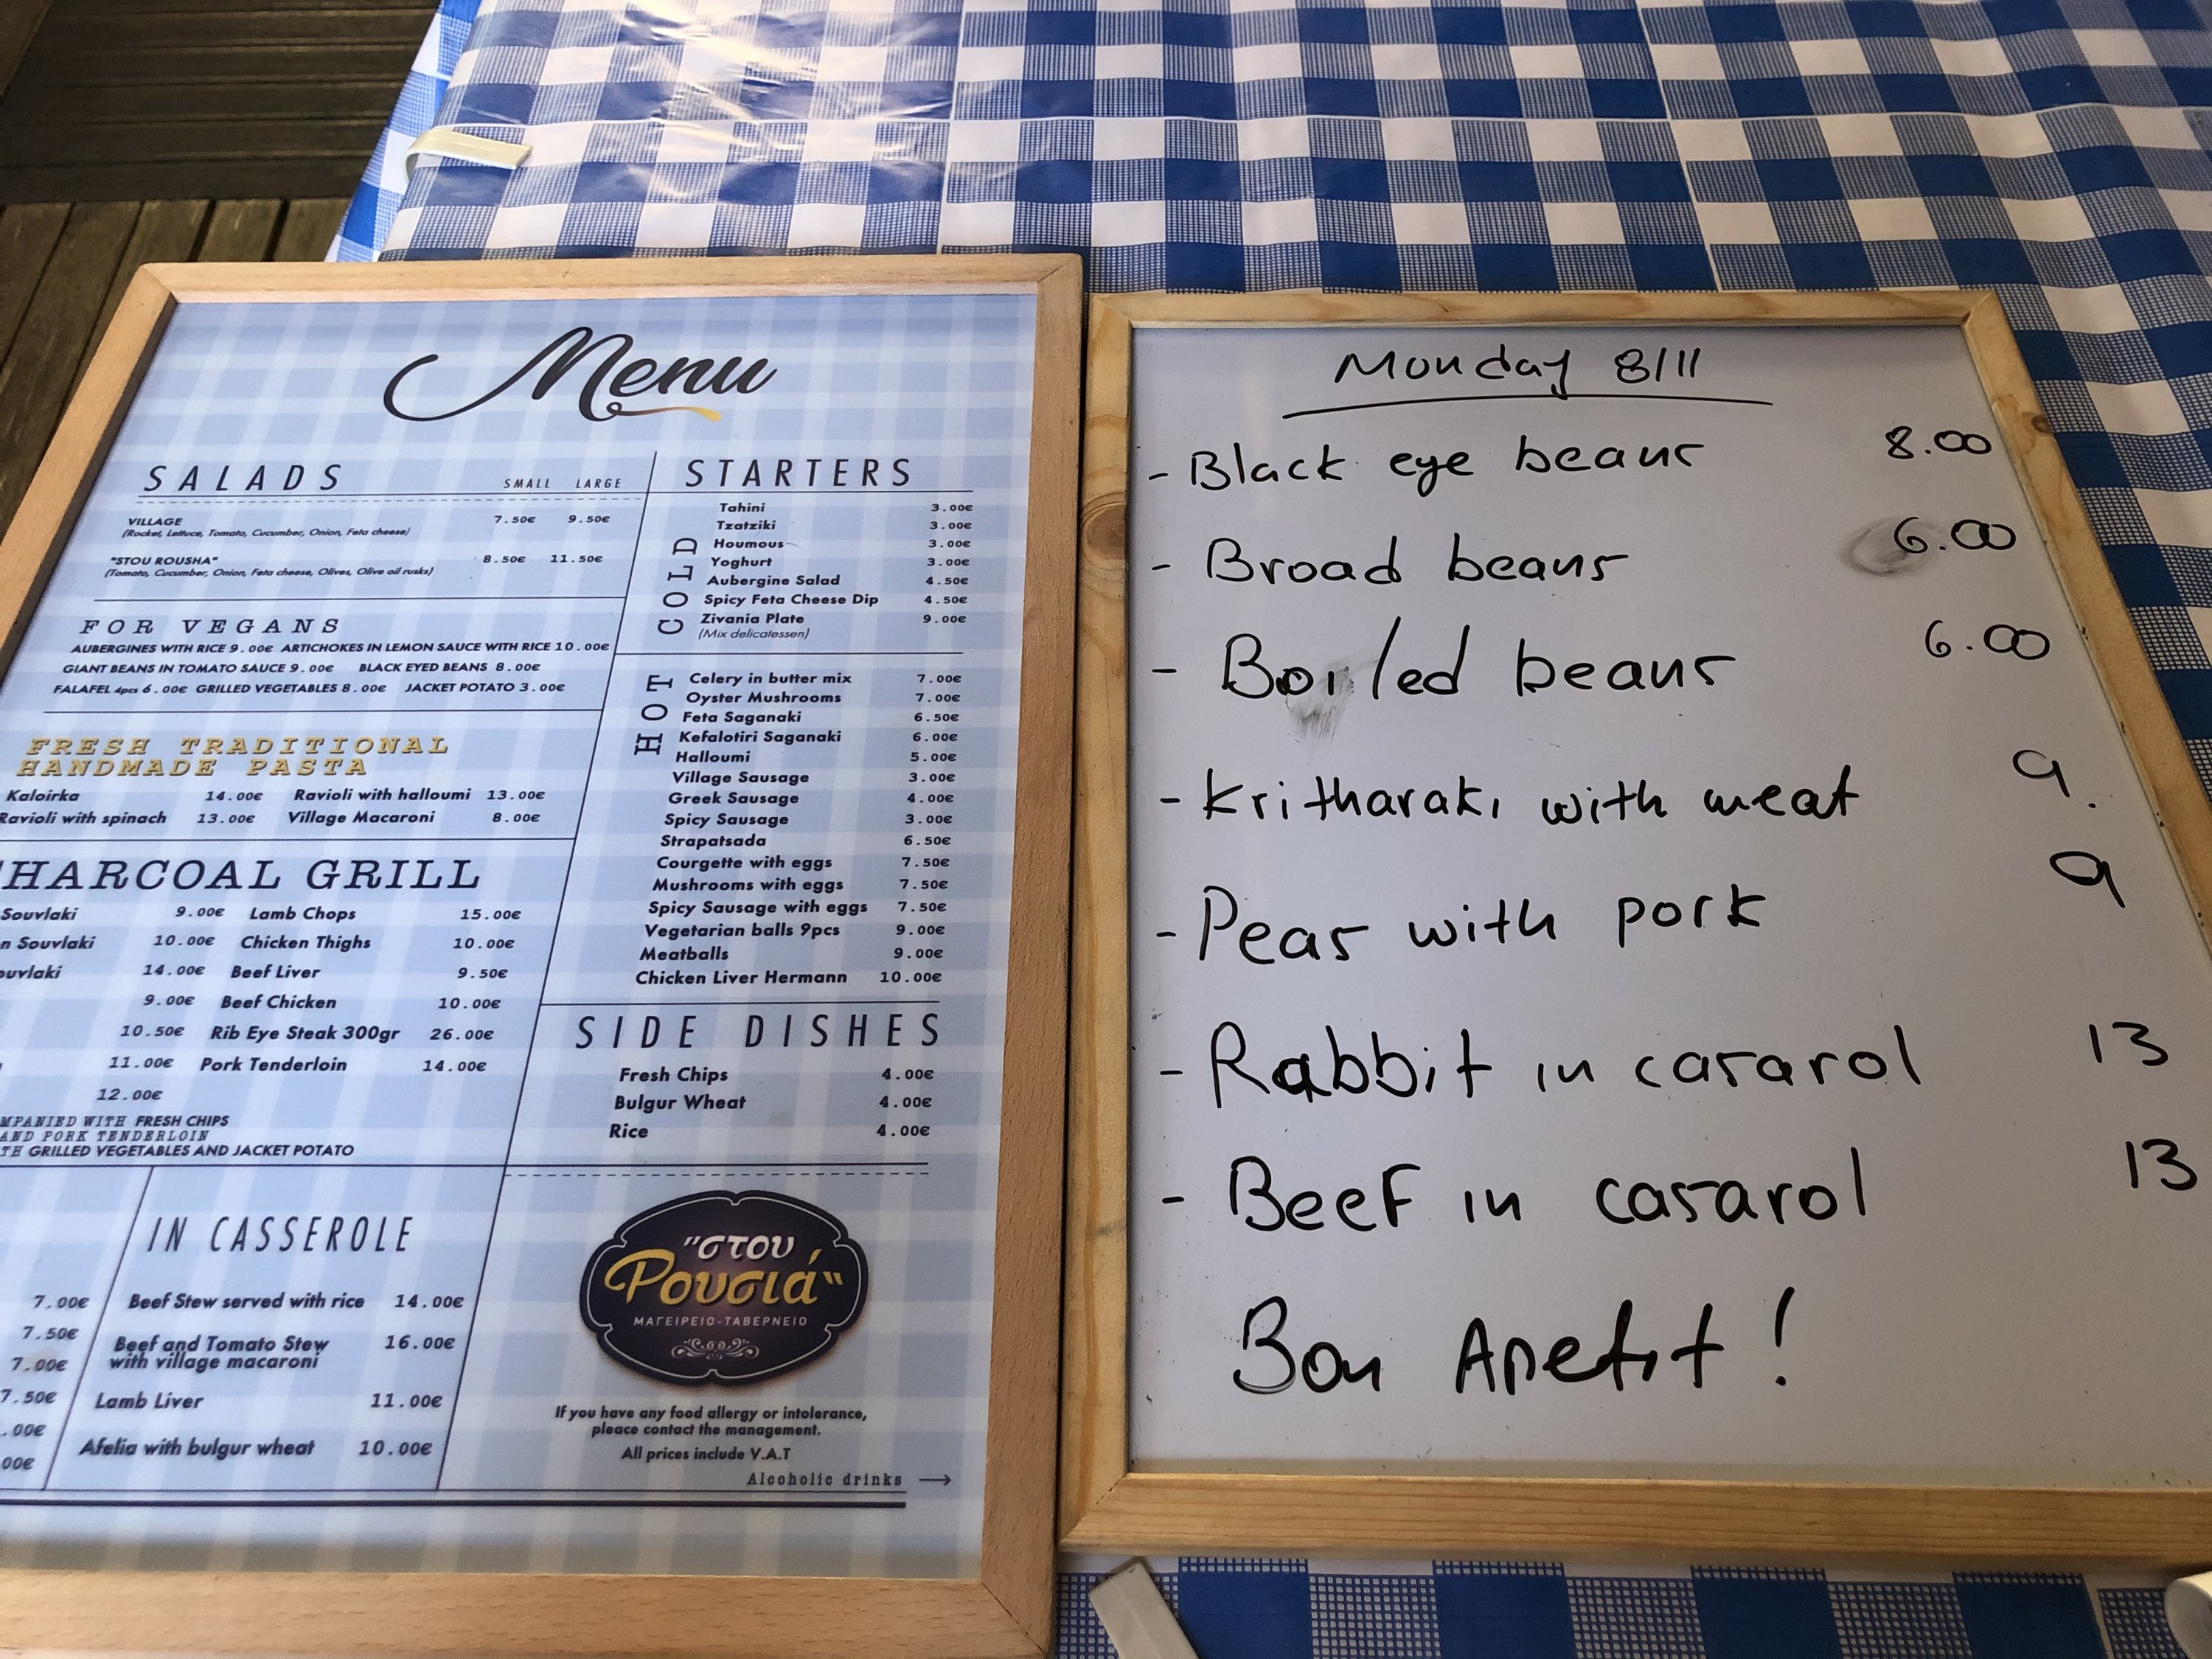 Menu
SALADS SMALL LARGE
VILLAGE 7.50€ 9.50€
(Rocket, Lettuce, Tomato, Cucumber, Onion, Feta cheese)
"STOU ROUSHA" 8.50€ 11.50€
(Tomato, Cucumber, Onion, Feta cheese, Olives, Olive oil rusks)
FOR VEGANS
AUBERGINES WITH RICE 9.00€ ARTICHOKES IN LEMON SAUCE WITH RICE 10.00€
GIANT BEANS IN TOMATO SAUCE 9.00€ BLACK EYED BEANS 8.00€
FALAFEL 4pcs 6.00€ GRILLED VEGETABLES 8.00€ JACKET POTATO 3.00€
FRESH TRADITIONAL
HANDMADE PASTA
Kaloirka 14.00€ Ravioli with halloumi 13.00€
Ravioli with spinach 13.00€ Village Macaroni 8.00€
HARCOAL GRILL
Souvlaki 9.00€ Lamb Chops 15.00€
n Souvlaki 10.00€ Chicken Thighs 10.00€
ouvlaki 14.00€ Beef Liver 9.50€
9.00€ Beef Chicken 10.00€
10.50€ Rib Eye Steak 300gr 26.00€
11.00€ Pork Tenderloin 14.00€
12.00€
MPANIED WITH FRESH CHIPS
AND PORK TENDERLOIN
TH GRILLED VEGETABLES AND JACKET POTATO
7.00€
7.50€
7.00€
7.50€
.00€
00€
IN CASSEROLE
Beef Stew served with rice 14.00€
Beef and Tomato Stew 16.00€
with village macaroni
Lamb Liver 11.00€
Afelia with bulgur wheat 10.00€
STARTERS
COLD
Tahini 3.00€
Tzatziki 3.00€
Houmous 3.00€
Yoghurt 3.00€
Aubergine Salad 4.50€
Spicy Feta Cheese Dip 4.50€
Zivania Plate 9.00€
(Mix delicatessen)
HOT
Celery in butter mix 7.00€
Oyster Mushrooms 7.00€
Feta Saganaki 6.50€
Kefalotiri Saganaki 6.00€
Halloumi 5.00€
Village Sausage 3.00€
Greek Sausage 4.00€
Spicy Sausage 3.00€
Strapatsada 6.50€
Courgette with eggs 7.50€
Mushrooms with eggs 7.50€
Spicy Sausage with eggs 7.50€
Vegetarian balls 9pcs 9.00€
Meatballs 9.00€
Chicken Liver Hermann 10.00€
SIDE DISHES
Fresh Chips 4.00€
Bulgur Wheat 4.00€
Rice 4.00€
"στου
Ρουσιά"
ΜΑΓΕΙΡΕΙΟ-ΤΑΒΕΡΝΕΙΟ
If you have any food allergy or intolerance,
pleace contact the management.
All prices include V.A.T
Alcoholic drinks →
Monday 8/11
- Black eye beans 8.00
- Broad beans 6.00
- Boiled beans 6.00
- Kritharaki with meat 9.
- Peas with pork 9
- Rabbit in casarol 13
- Beef in casarol 13
Bon Apetit!